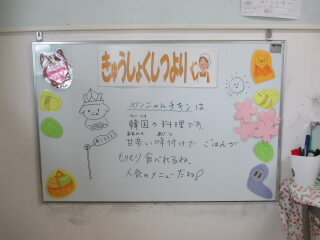 きゅうしょくしつより
ヤンニャムチキンは
韓国の料理です。
甘辛い味付けで、ごはんが
もりもり食べれるね。
人気のメニューだね